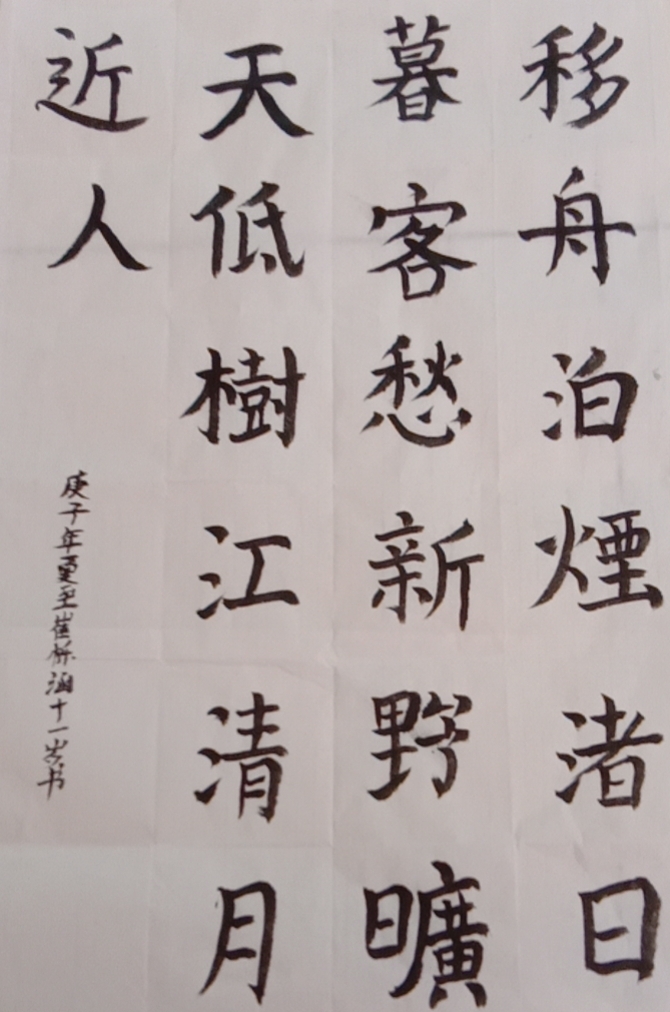 移舟泊煙渚日
暮客愁新野曠
天低樹江清月
近人
庚子年夏至崔栎涵十一岁书